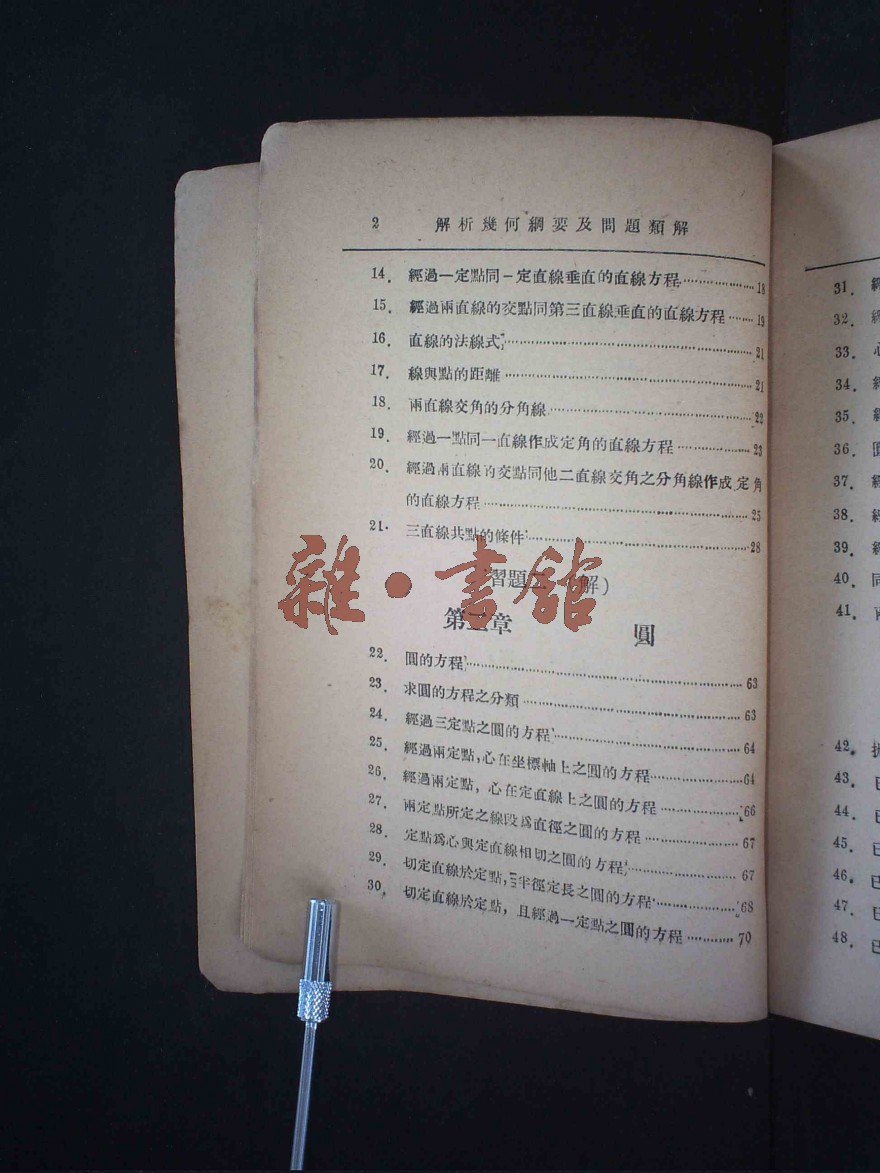 2 解析幾何綱要及問題類解
14. 經過一定點同一定直線垂直的直線方程 18
15. 經過兩直線的交點同第三直線垂直的直線方程 19
16. 直線的法線式 21
17. 線與點的距離 21
18. 兩直線交角的分角線 22
19. 經過一點同一直線作成定角的直線方程 23
20. 經過兩直線的交點同他二直線交角之分角線作成定角
的直線方程 25
21. 三直線共點的條件 28
習題 解)
雜·書館
第 章 圓
22. 圓的方程 63
23. 求圓的方程之分類 63
24. 經過三定點之圓的方程 64
25. 經過兩定點,心在坐標軸上之圓的方程 64
26. 經過兩定點,心在定直線上之圓的方程 66
27. 兩定點所定之線段爲直徑之圓的方程 67
28. 定點爲心與定直線相切之圓的方程 67
29. 切定直線於定點, 半徑定長之圓的方程 68
30. 切定直線於定點,且經過一定點之圓的方程 70
31.
32.
33.
34.
35.
36.
37.
38.
39.
40.
41.
42.
43.
44.
45.
46.
47.
48.